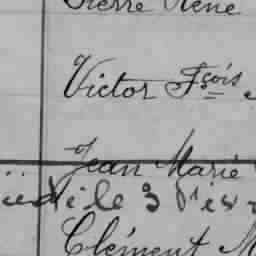 Pierre René
Victor Fçois
Jean Marie
le 3
Clément M